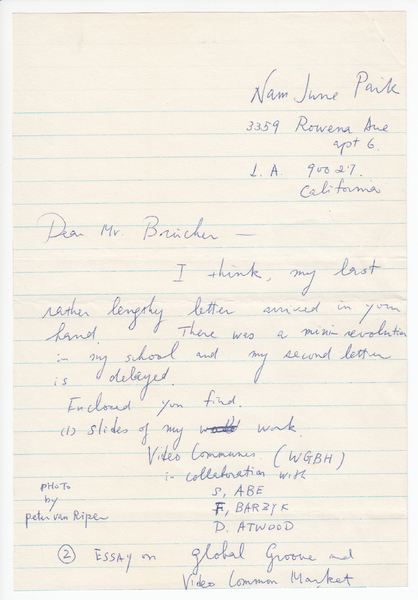 Nam June Paik
3359 Rowena Ave
apt 6.
L.A. 90027.
California
Dear Mr. Brücher —
I think, my last
rather lengthy letter arrived in your
hand. There was a mini revolution
in my school and my second letter
is delayed.
Enclosed you find.
(1) slides of my work.
Video Communes. (WGBH)
in collaboration with
S, ABE
F, BARZYK
D. ATWOOD
PHOTO
by
peter van Riper
② ESSAY on global Groove and
Video Common Market